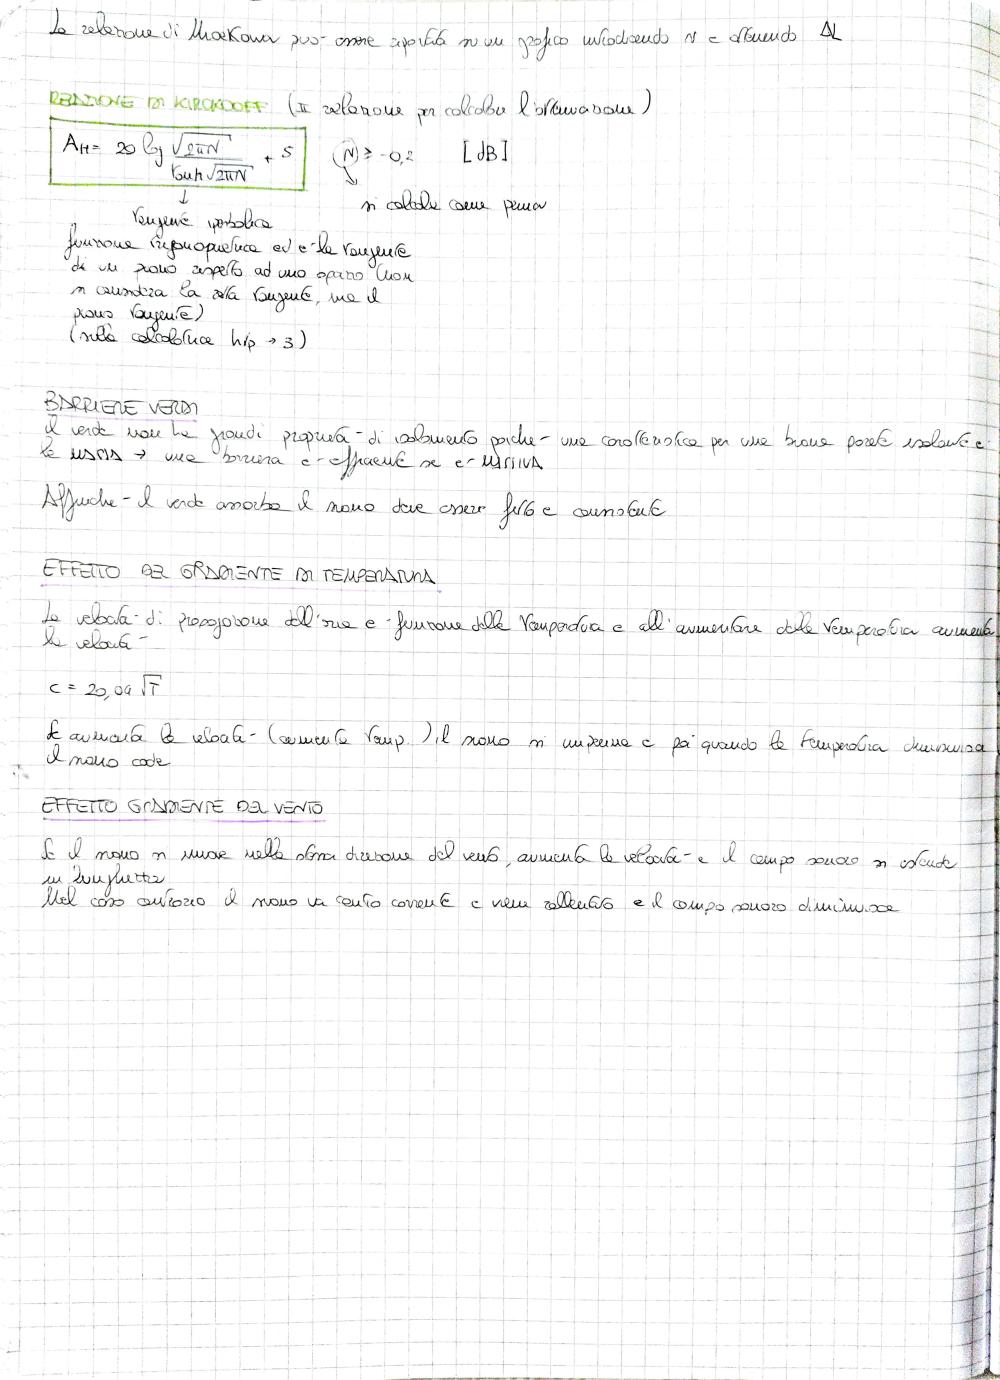 La relazione di Maekawa può essere riportata in un grafico introducendo N e ottenendo ΔL
RELAZIONE DI KIRCKOOFF (II relazione per calcolare l'attenuazione)
AH = 20 log √2πN / tanh √2πN + 5   (N) ≥ -0,2   [dB]
si calcola come prima
tangente iperbolica
funzione trigonometrica ed è la tangente
di un piano rispetto ad uno spazio (non
si considera la retta tangente, ma il
piano tangente)
(nella calcolatrice hip → 3)
BARRIERE VERDI
il verde non ha grandi proprietà di isolamento perché una caratteristica per una buona parete isolante è
la MASSA → una barriera è efficiente se è MASSIVA
Affinché il verde assorba il suono deve essere fitto e consistente
EFFETTO DEL GRADIENTE DI TEMPERATURA
La velocità di propagazione dell'aria è funzione della temperatura e all'aumentare della temperatura aumenta
la velocità
c = 20,04 √T
Se aumenta la velocità (aumenta temp.) il suono si impenna e poi quando la temperatura diminuisce
il suono cade
EFFETTO GRADIENTE DEL VENTO
Se il suono si muove nella stessa direzione del vento, aumenta la velocità e il campo sonoro si estende
in lunghezza
Nel caso contrario il suono va contro corrente e viene rallentato e il campo sonoro diminuisce